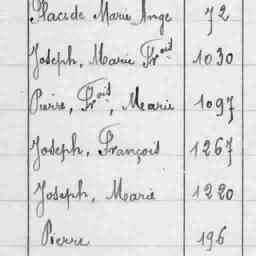 Placide Marie Ange 72
Joseph, Marie Frois 1030
Pierre, Frois, Marie 1097
Joseph, François 1267
Joseph, Marie 1220
Pierre 196